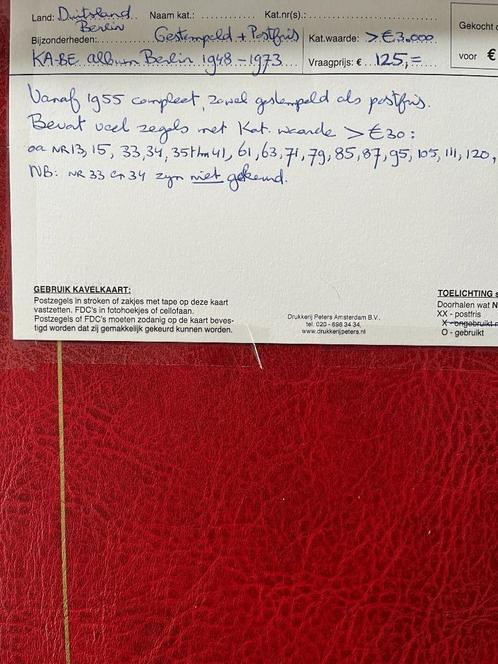 Land: Duitsland Naam kat.: Kat.nr(s).:
Berlin
Bijzonderheden: Gestempeld + Postfris Kat.waarde: > €3.000
KA-BE album Berlin 1948-1973 Vraagprijs: € 125,=
Gekocht
voor €
Vanaf 1955 compleet, zowel gestempeld als postfris.
Bevat veel zegels met Kat. waarde > €30:
oa NR 13, 15, 33, 34, 35 t/m 41, 61, 63, 71, 79, 85, 87, 95, 105, 111, 120,
NB: NR 33 en 34 zyn niet gekeurd.
GEBRUIK KAVELKAART:
Postzegels in stroken of zakjes met tape op deze kaart
vastzetten. FDC's in fotohoekjes of cellofaan.
Postzegels of FDC's moeten zodanig op de kaart beves-
tigd worden dat zij gemakkelijk gekeurd kunnen worden.
Drukkerij Peters Amsterdam B.V.,
tel. 020 - 698 34 34,
www.drukkerijpeters.nl
TOELICHTING
Doorhalen wat
XX - postfris
X - ongebruikt
O - gebruikt